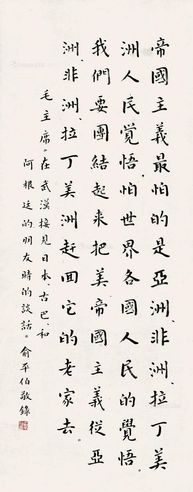 帝國主義最怕的是亞洲、非洲、拉丁美
洲人民覺悟，怕世界各國人民的覺悟。
我們要團結起來把美帝國主義從亞
洲、非洲、拉丁美洲赶回它的老家去。
毛主席。在武漢接見日本、古巴、和
阿根廷的朋友時的談話。俞平伯敬錄